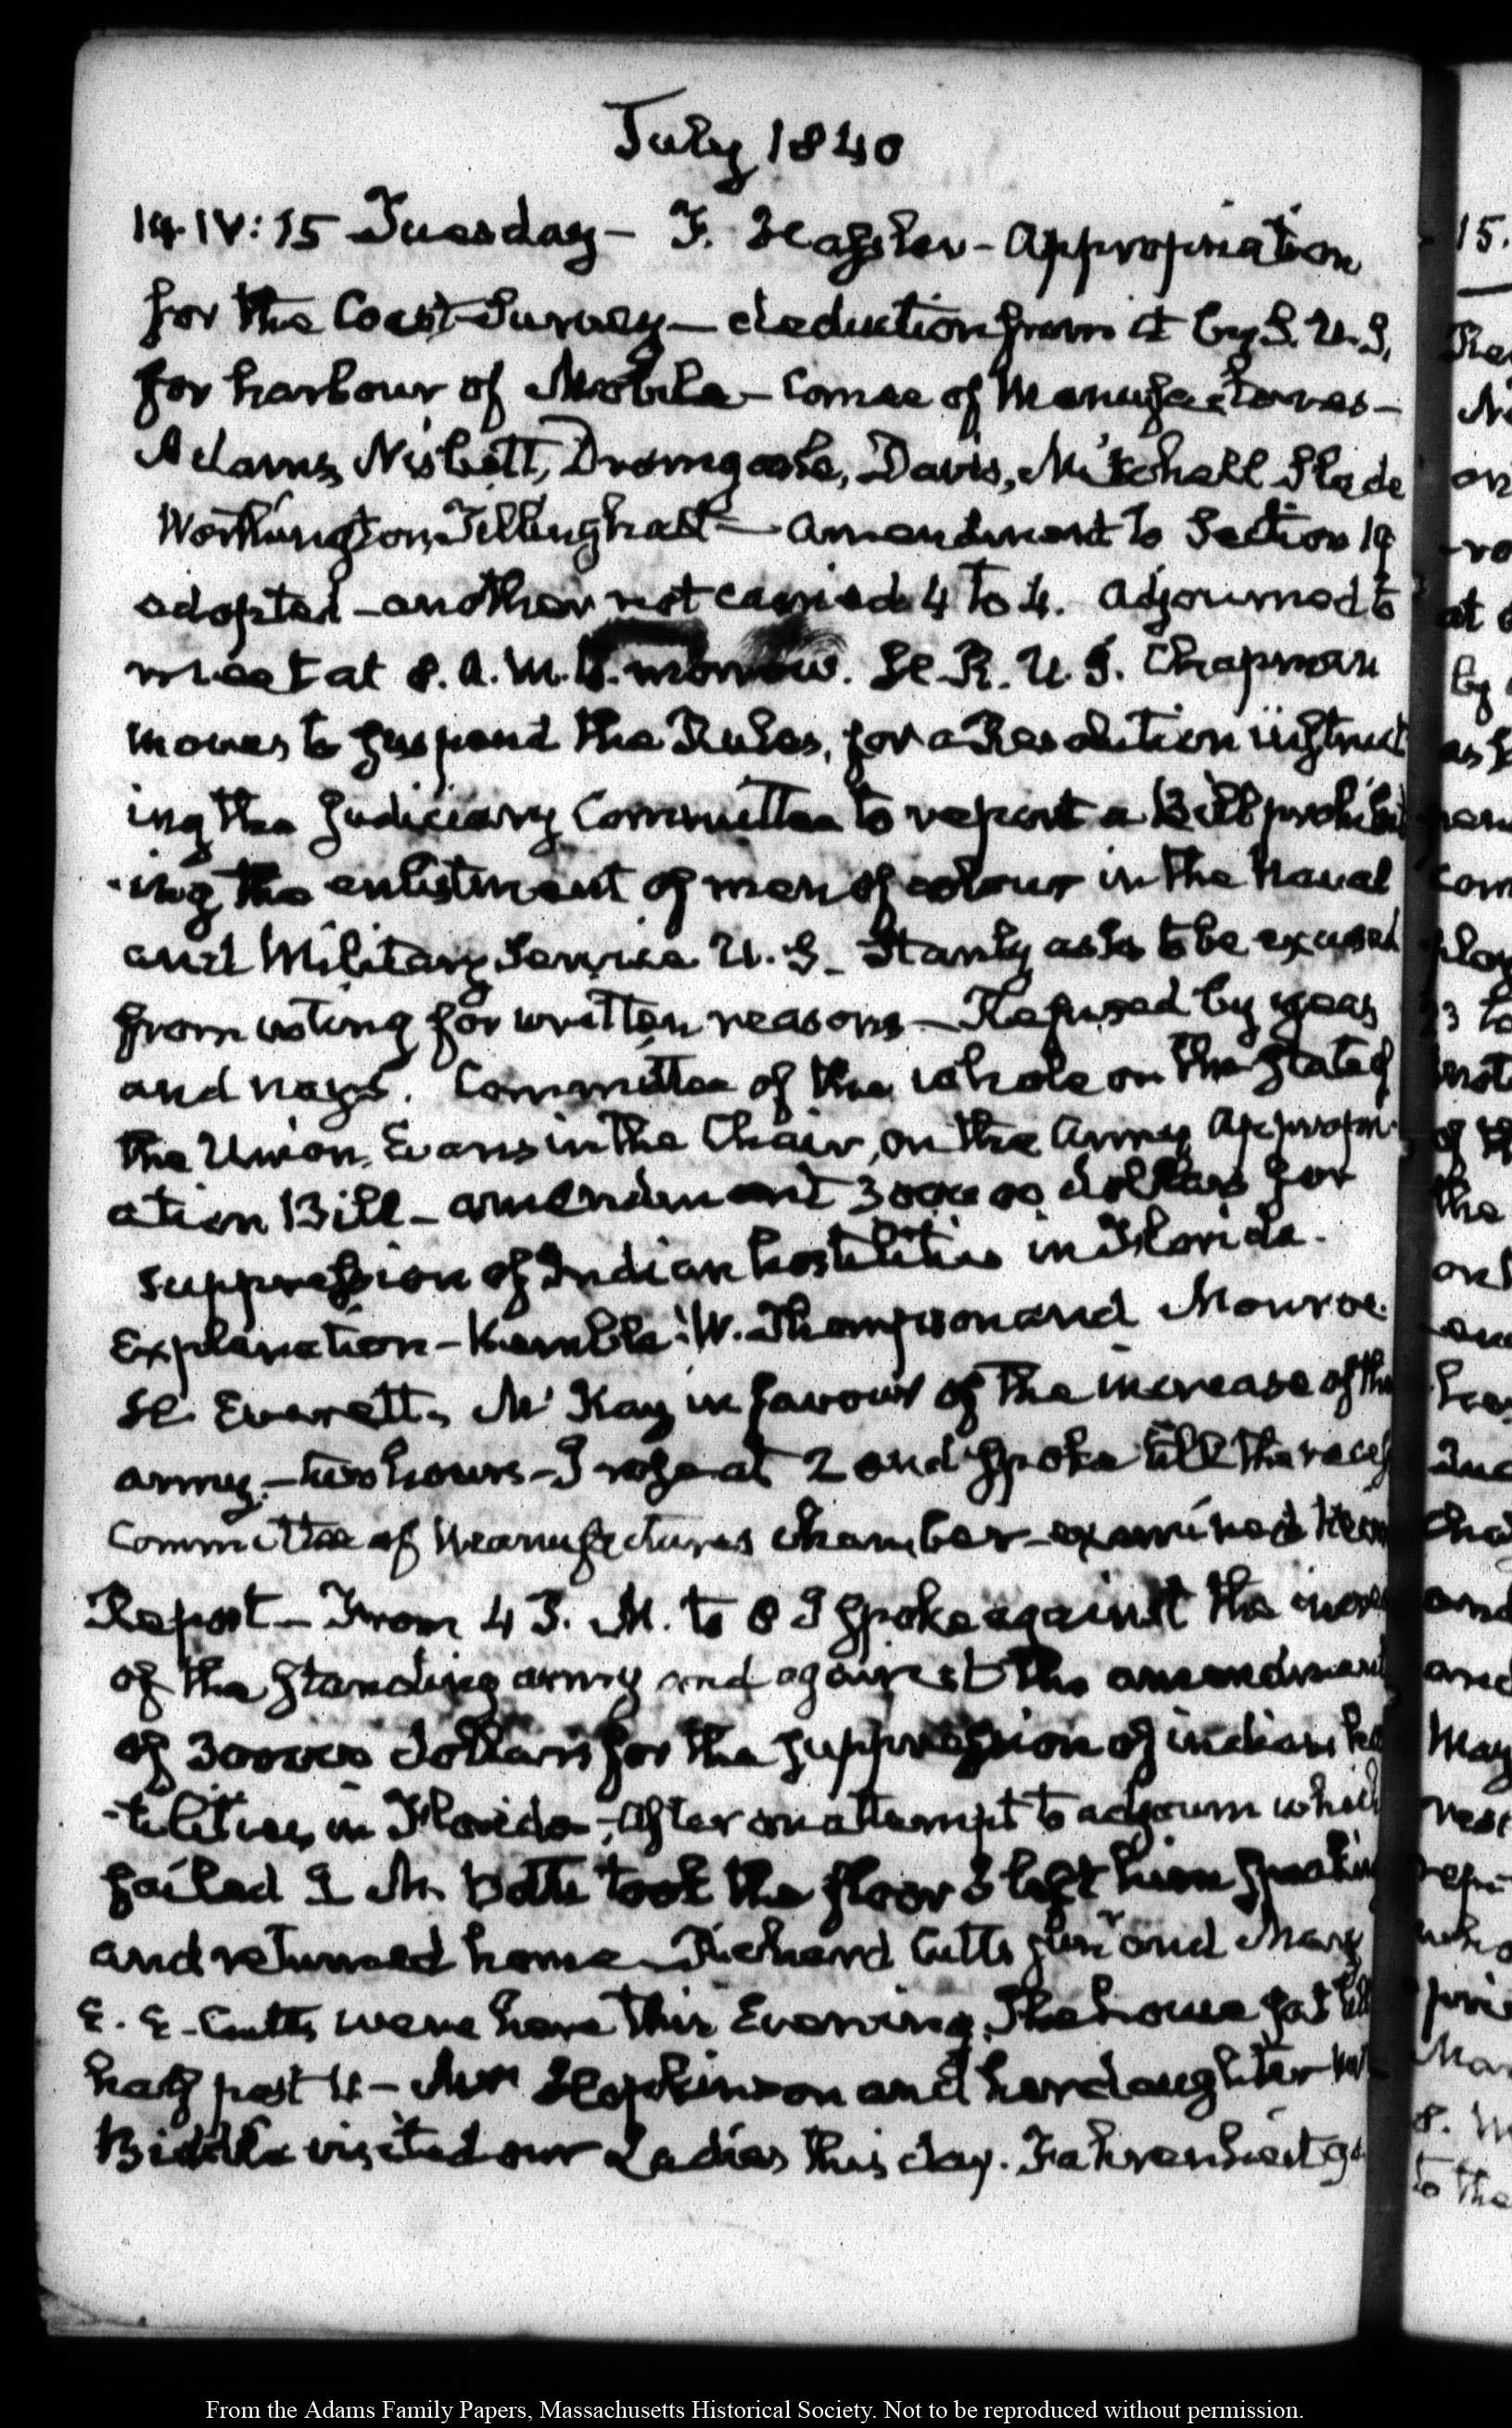 July 1840
14. IV:15 Tuesday – F. Hassler – Appropriation
for the Coast Survey – deduction from it by S. U.S.
for harbour of Mobile – Comee of Manufactures –
Adams, Nisbett, Dromgoole, Davis, Mitchell, Slade
Worthington, Tillinghast – amendment to Section 19
adopted – another not carried 4 to 4. adjourned to
meet at 8. A.M. to. morrow. H.R. U.S. Chapman
moves to suspend the Rules, for a Resolution instruct
ing the Judiciary Committee to report a Bill prohibit
-ing the enlistment of men of colour in the Naval
and Military Service U.S – Stanly asks to be excused
from voting for written reasons – Refused by yeas
and nays. Committee of the whole on the State of
the Union, Evans in the Chair, on the Army Appropri-
ation Bill – amendment 300000 dollars for
suppression of Indian hostilities in Florida.
Explanation – Kemble: W. Thompson and Monroe.
H. Everett. McKay in favour of the increase of the
army. – two hours – I rose at 2 and spoke till the recess
Committee of Manufactures chamber – examined
Report – From 4 P.M. to 6 I spoke against the
of the standing army and against the amendment
of 300000 dollars for the suppression of indian hos
-tilities in Florida – After an attempt to adjourn which
failed J. M. Botts took the floor I left him speaking
and returned home – Richard Cutts junr and Mary
E. E. Cutts were here this Evening. The house sat till
half past 11 – Mrs Hopkinson and her daughter
Biddle visited our Ladies this day. Fahrenheit
15.
From the Adams Family Papers, Massachusetts Historical Society. Not to be reproduced without permission.